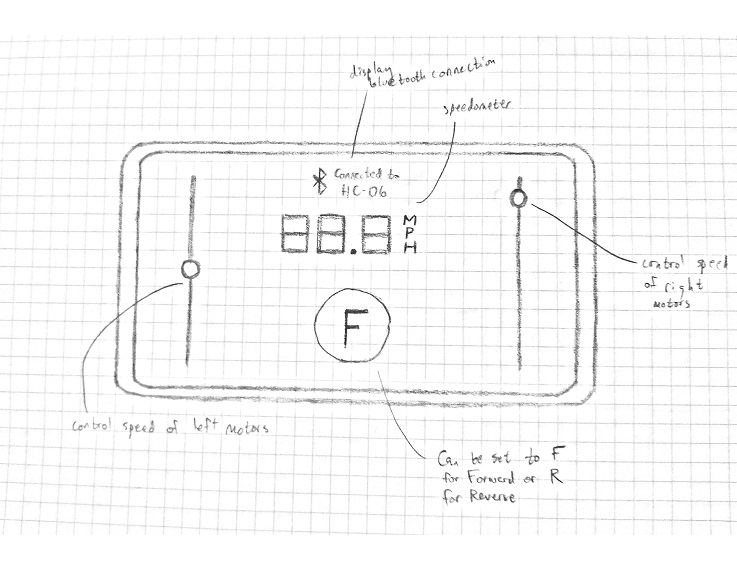 display
bluetooth connection
speedometer
Connected to
HC-06
88.8
M
P
H
control speed
of right
motors
F
control speed of left motors
Can be set to F
for Forward or R
for Reverse